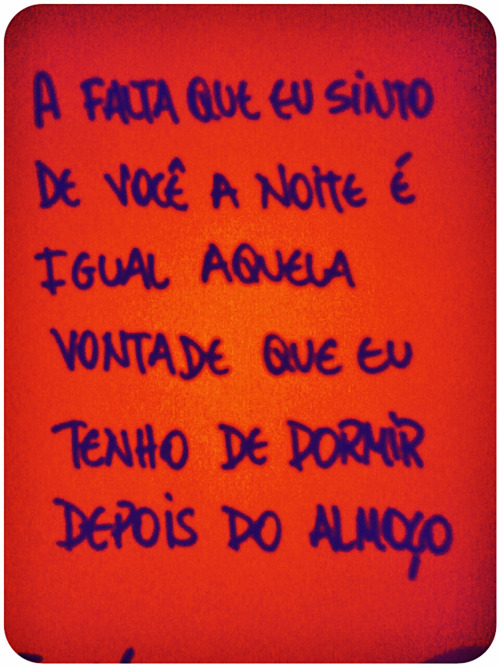 A FALTA QUE EU SINTO
DE VOCÊ A NOITE É
IGUAL AQUELA
VONTADE QUE EU
TENHO DE DORMIR
DEPOIS DO ALMOÇO